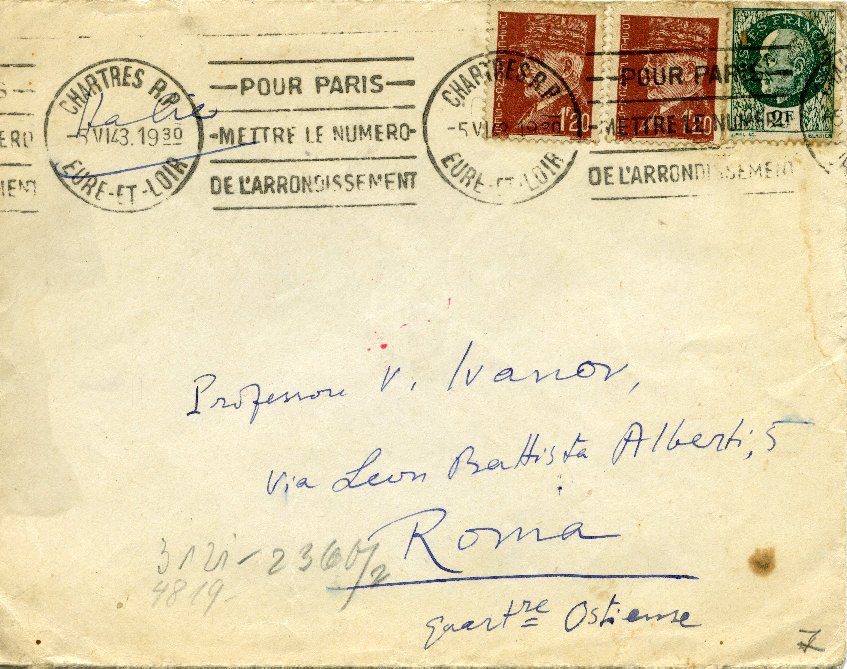 CHARTRES R.P.
-5 VI 43. 19 30
EURE-ET-LOIR
Italie
POUR PARIS
METTRE LE NUMERO
DE L'ARRONDISSEMENT
CHARTRES R.P.
-5 VI 19 30
EURE-ET-LOIR
POUR PARIS
METTRE LE NUMERO
DE L'ARRONDISSEMENT
1F20
20
FRANÇAISES
2F
Professore V. Ivanov,
via Leon Battista Alberti, 5
Roma
quartre Ostiense
3121 - 2360/2
4819-
7